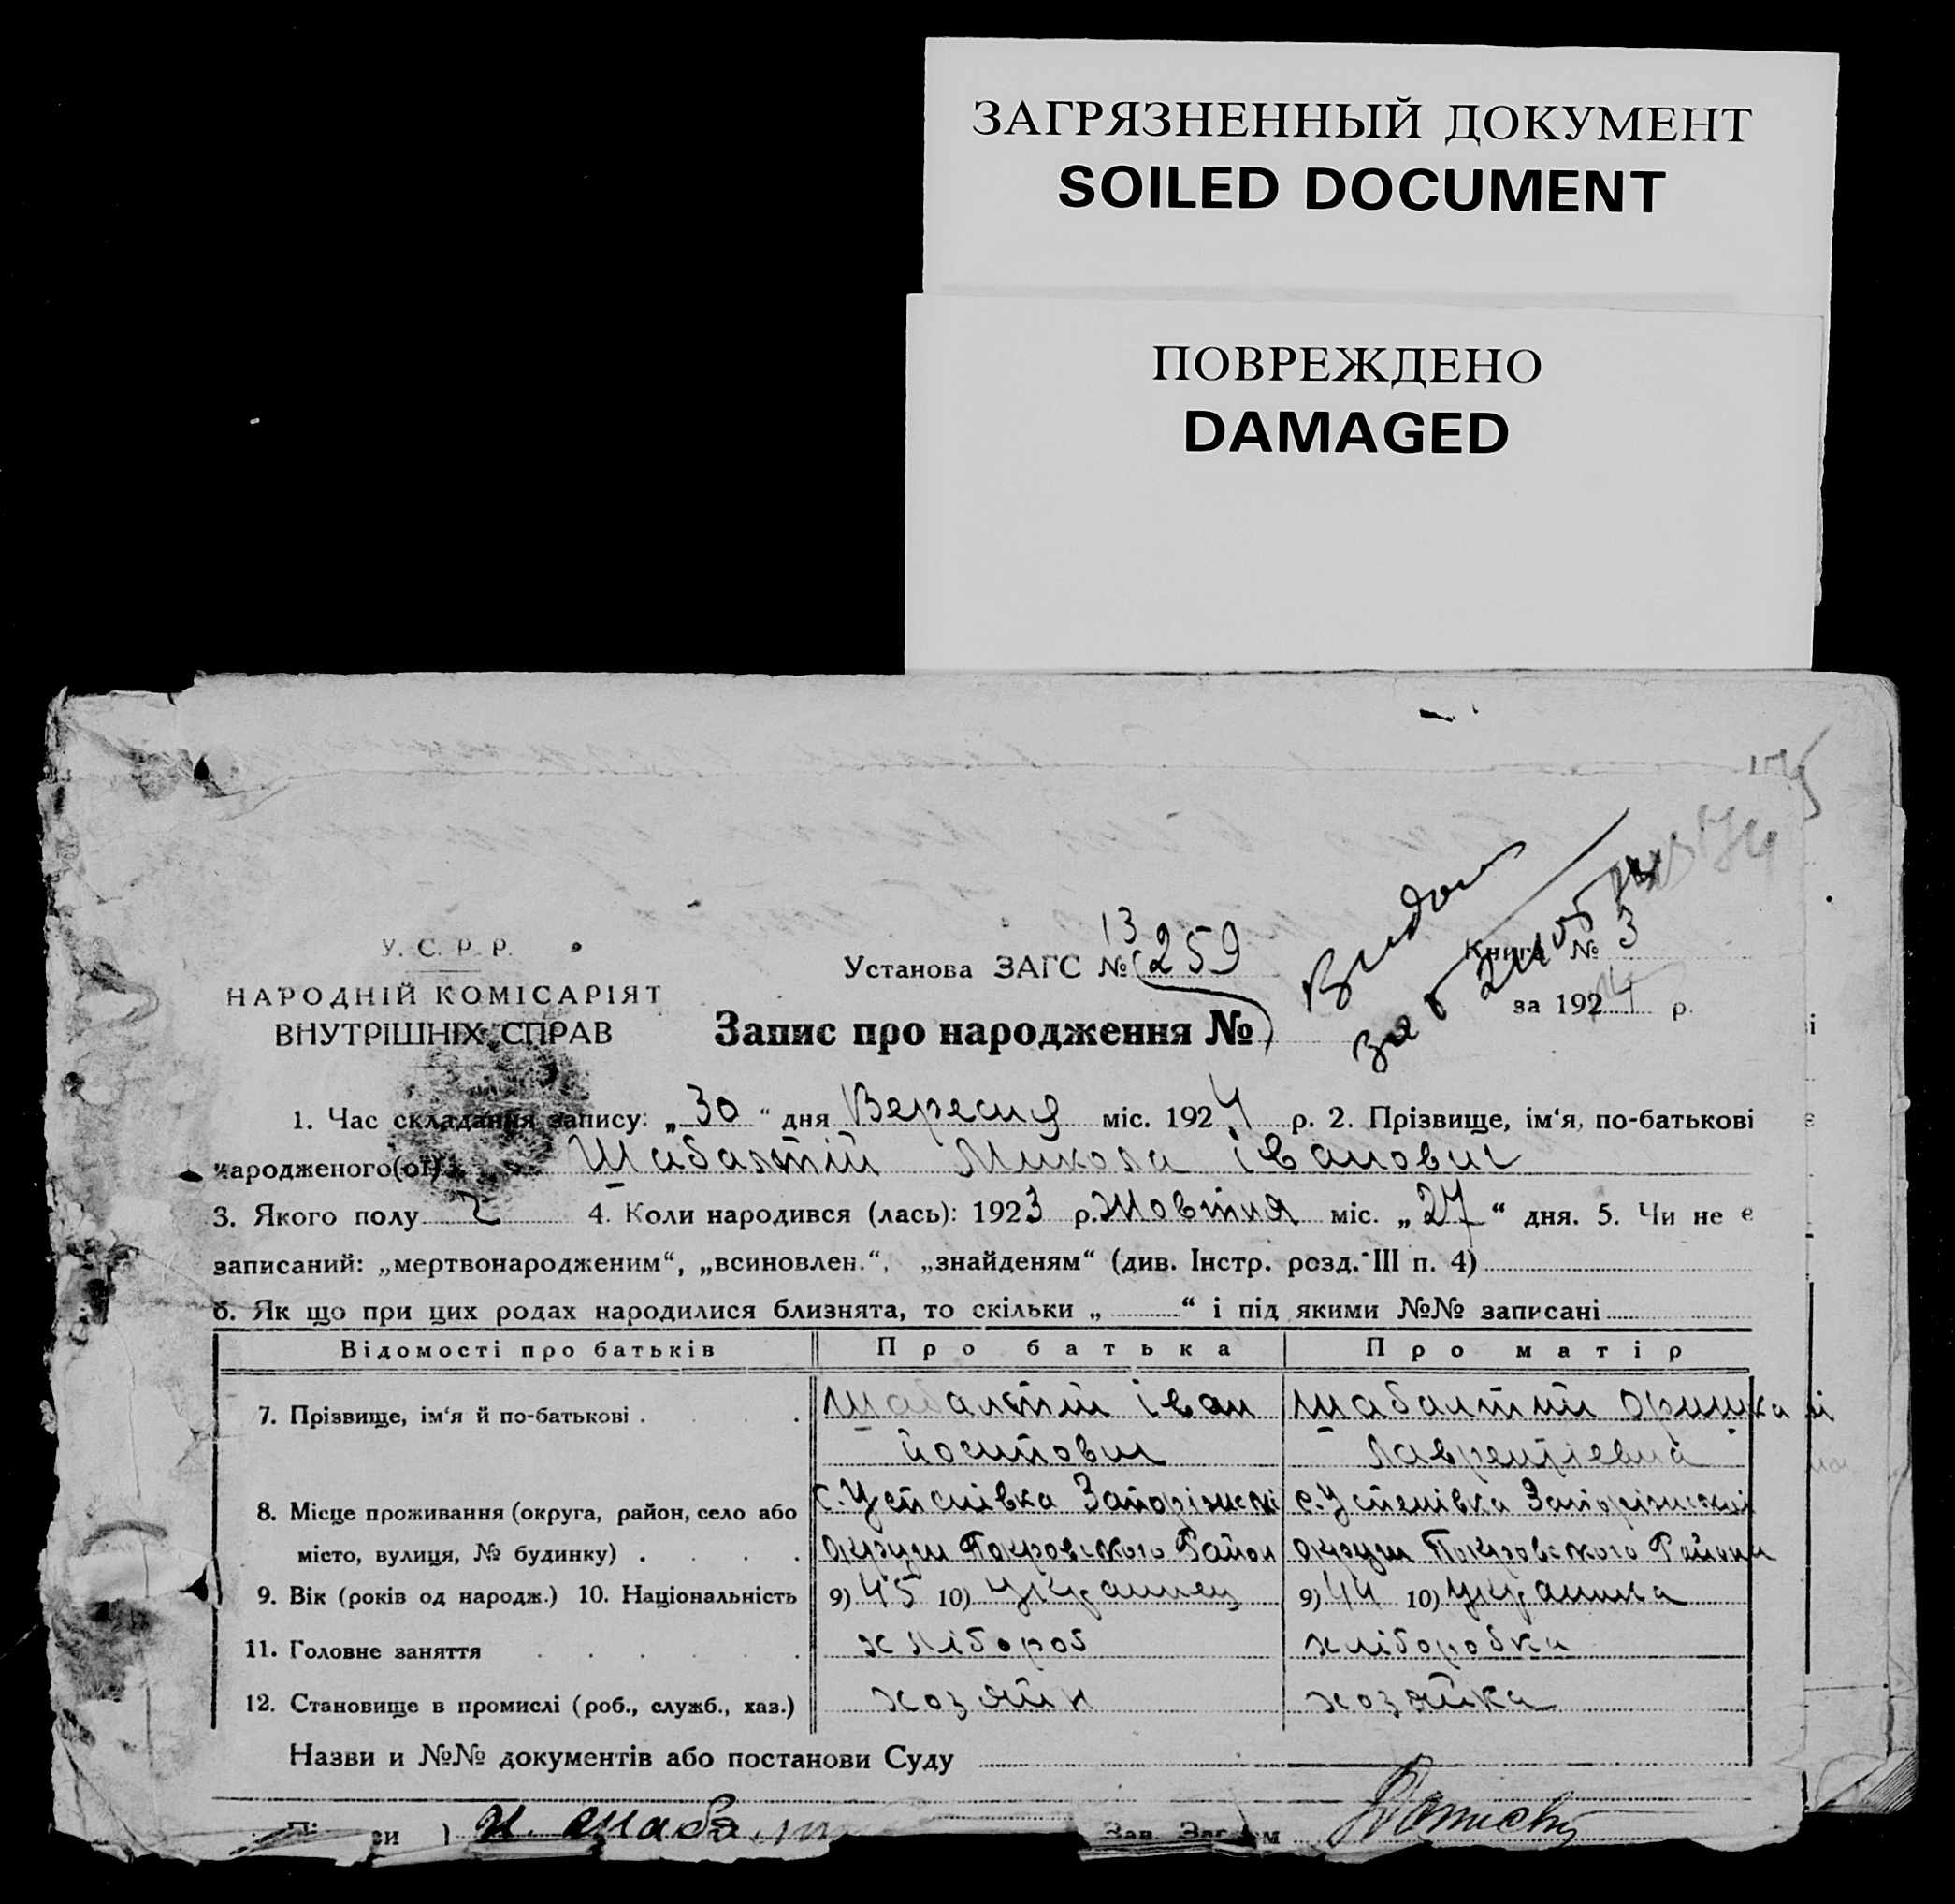 ЗАГРЯЗНЕННЫЙ ДОКУМЕНТ
SOILED DOCUMENT
ПОВРЕЖДЕНО
DAMAGED
У. С. Р. Р.
НАРОДНІЙ КОМІСАРІЯТ
ВНУТРІШНІХ СПРАВ
13
Установа ЗАГС № 259
Книга № 3
за 1924 р.
Запис про народження №
1. Час складання запису: „30“ дня Вересня міс. 1924 р. 2. Прізвище, ім'я, по-батькові
народженого(ої) Шабалтій Микола Іванович
3. Якого полу 2 4. Коли народився (лась): 1923 р. Жовтня міс. „27“ дня. 5. Чи не є
записаний: „мертвонародженим“, „всиновлен.“, „знайденям“ (див. Інстр. розд. III п. 4)
6. Як що при цих родах народилися близнята, то скільки „ “ і під якими №№ записані
Відомості про батьків Про батька Про матір
7. Прізвище, ім'я й по-батькові . . . . Шабалтій Іван Шабалтий Оришка
Йосипович Лаврентіевна
8. Місце проживання (округа, район, село або с. Успенівка Запорізької с. Успенівка Запорізької
місто, вулиця, № будинку) . . . . округи Покровського Район округи Покровського Району
9. Вік (років од народж.) 10. Національність 9) 45 10) Українец 9) 44 10) Украинка
11. Головне заняття . . . . . . хлібороб хліборобка
12. Становище в промислі (роб., служб., хаз.) хозяїн хозяйка
Назви и №№ документів або постанови Суду